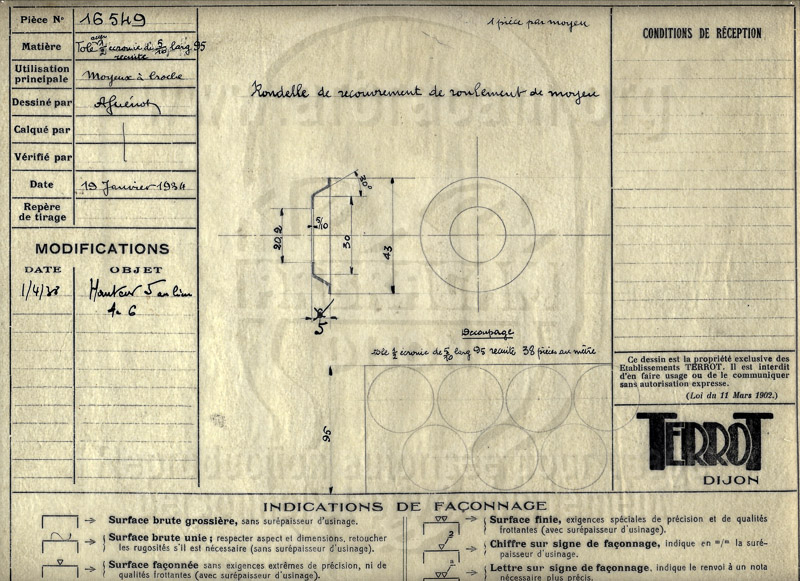 Pièce N° 16549
Matière Tôle acier 1/2 écrouie de 5/10 larg. 95
recuite
Utilisation
principale Moyeux à broche
Dessiné par AGuénot
Calqué par
Vérifié par
Date 19 Janvier 1934
Repère
de tirage
MODIFICATIONS
DATE OBJET
1/4/38 Hauteur 5 au lieu
de 6
1 pièce par moyeu
Rondelle de recouvrement de roulement de moyeu
30°
20,2
5/10
30
43
6
5
Découpage
tôle 1/2 écrouie de 5/10 larg 95 recuite 38 pièces au mètre
95
CONDITIONS DE RÉCEPTION
Ce dessin est la propriété exclusive des
Etablissements TERROT. Il est interdit
d'en faire usage ou de le communiquer
sans autorisation expresse.
(Loi du 11 Mars 1902.)
TERROT
DIJON
INDICATIONS DE FAÇONNAGE
Surface brute grossière, sans surépaisseur d'usinage.
Surface brute unie; respecter aspect et dimensions, retoucher
les rugosités s'il est nécessaire (sans surépaisseur d'usinage).
Surface façonnée sans exigences extrêmes de précision, ni de
qualités frottantes (avec surépaisseur d'usinage).
Surface finie, exigences spéciales de précision et de qualités
frottantes (avec surépaisseur d'usinage).
Chiffre sur signe de façonnage, indique en m/m la suré-
paisseur d'usinage.
Lettre sur signe de façonnage, indique le renvoi à un nota
nécessaire plus précis.